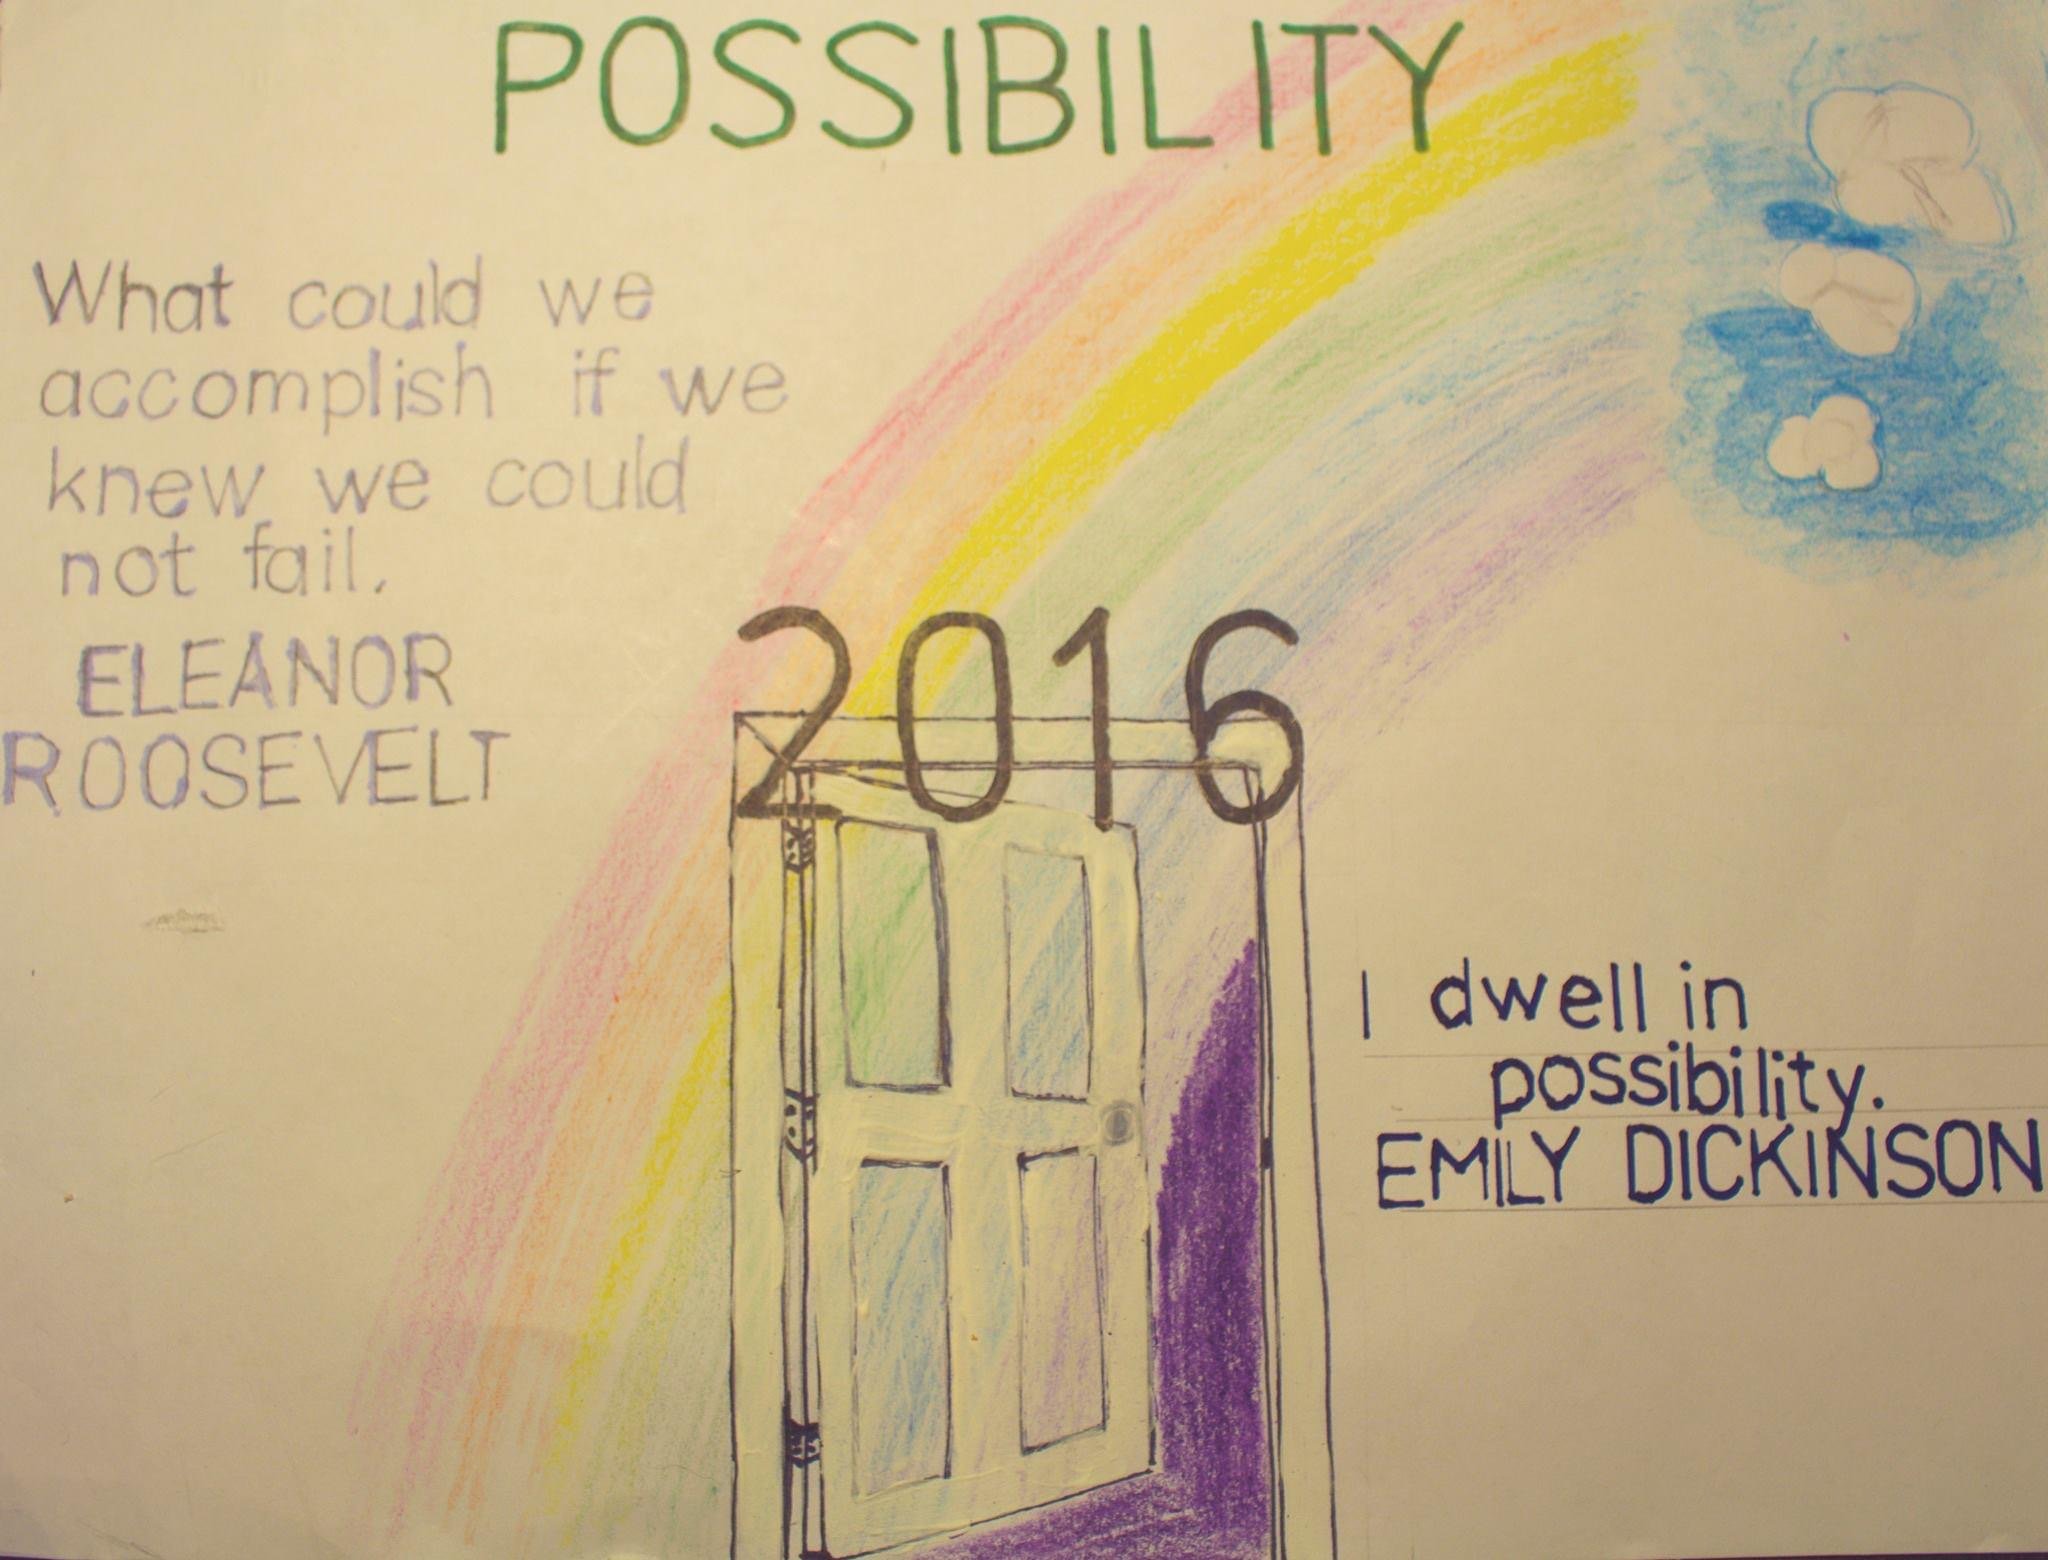 POSSIBILITY
What could we
accomplish if we
knew we could
not fail.
ELEANOR
ROOSEVELT
2016
I dwell in
possibility.
EMILY DICKINSON